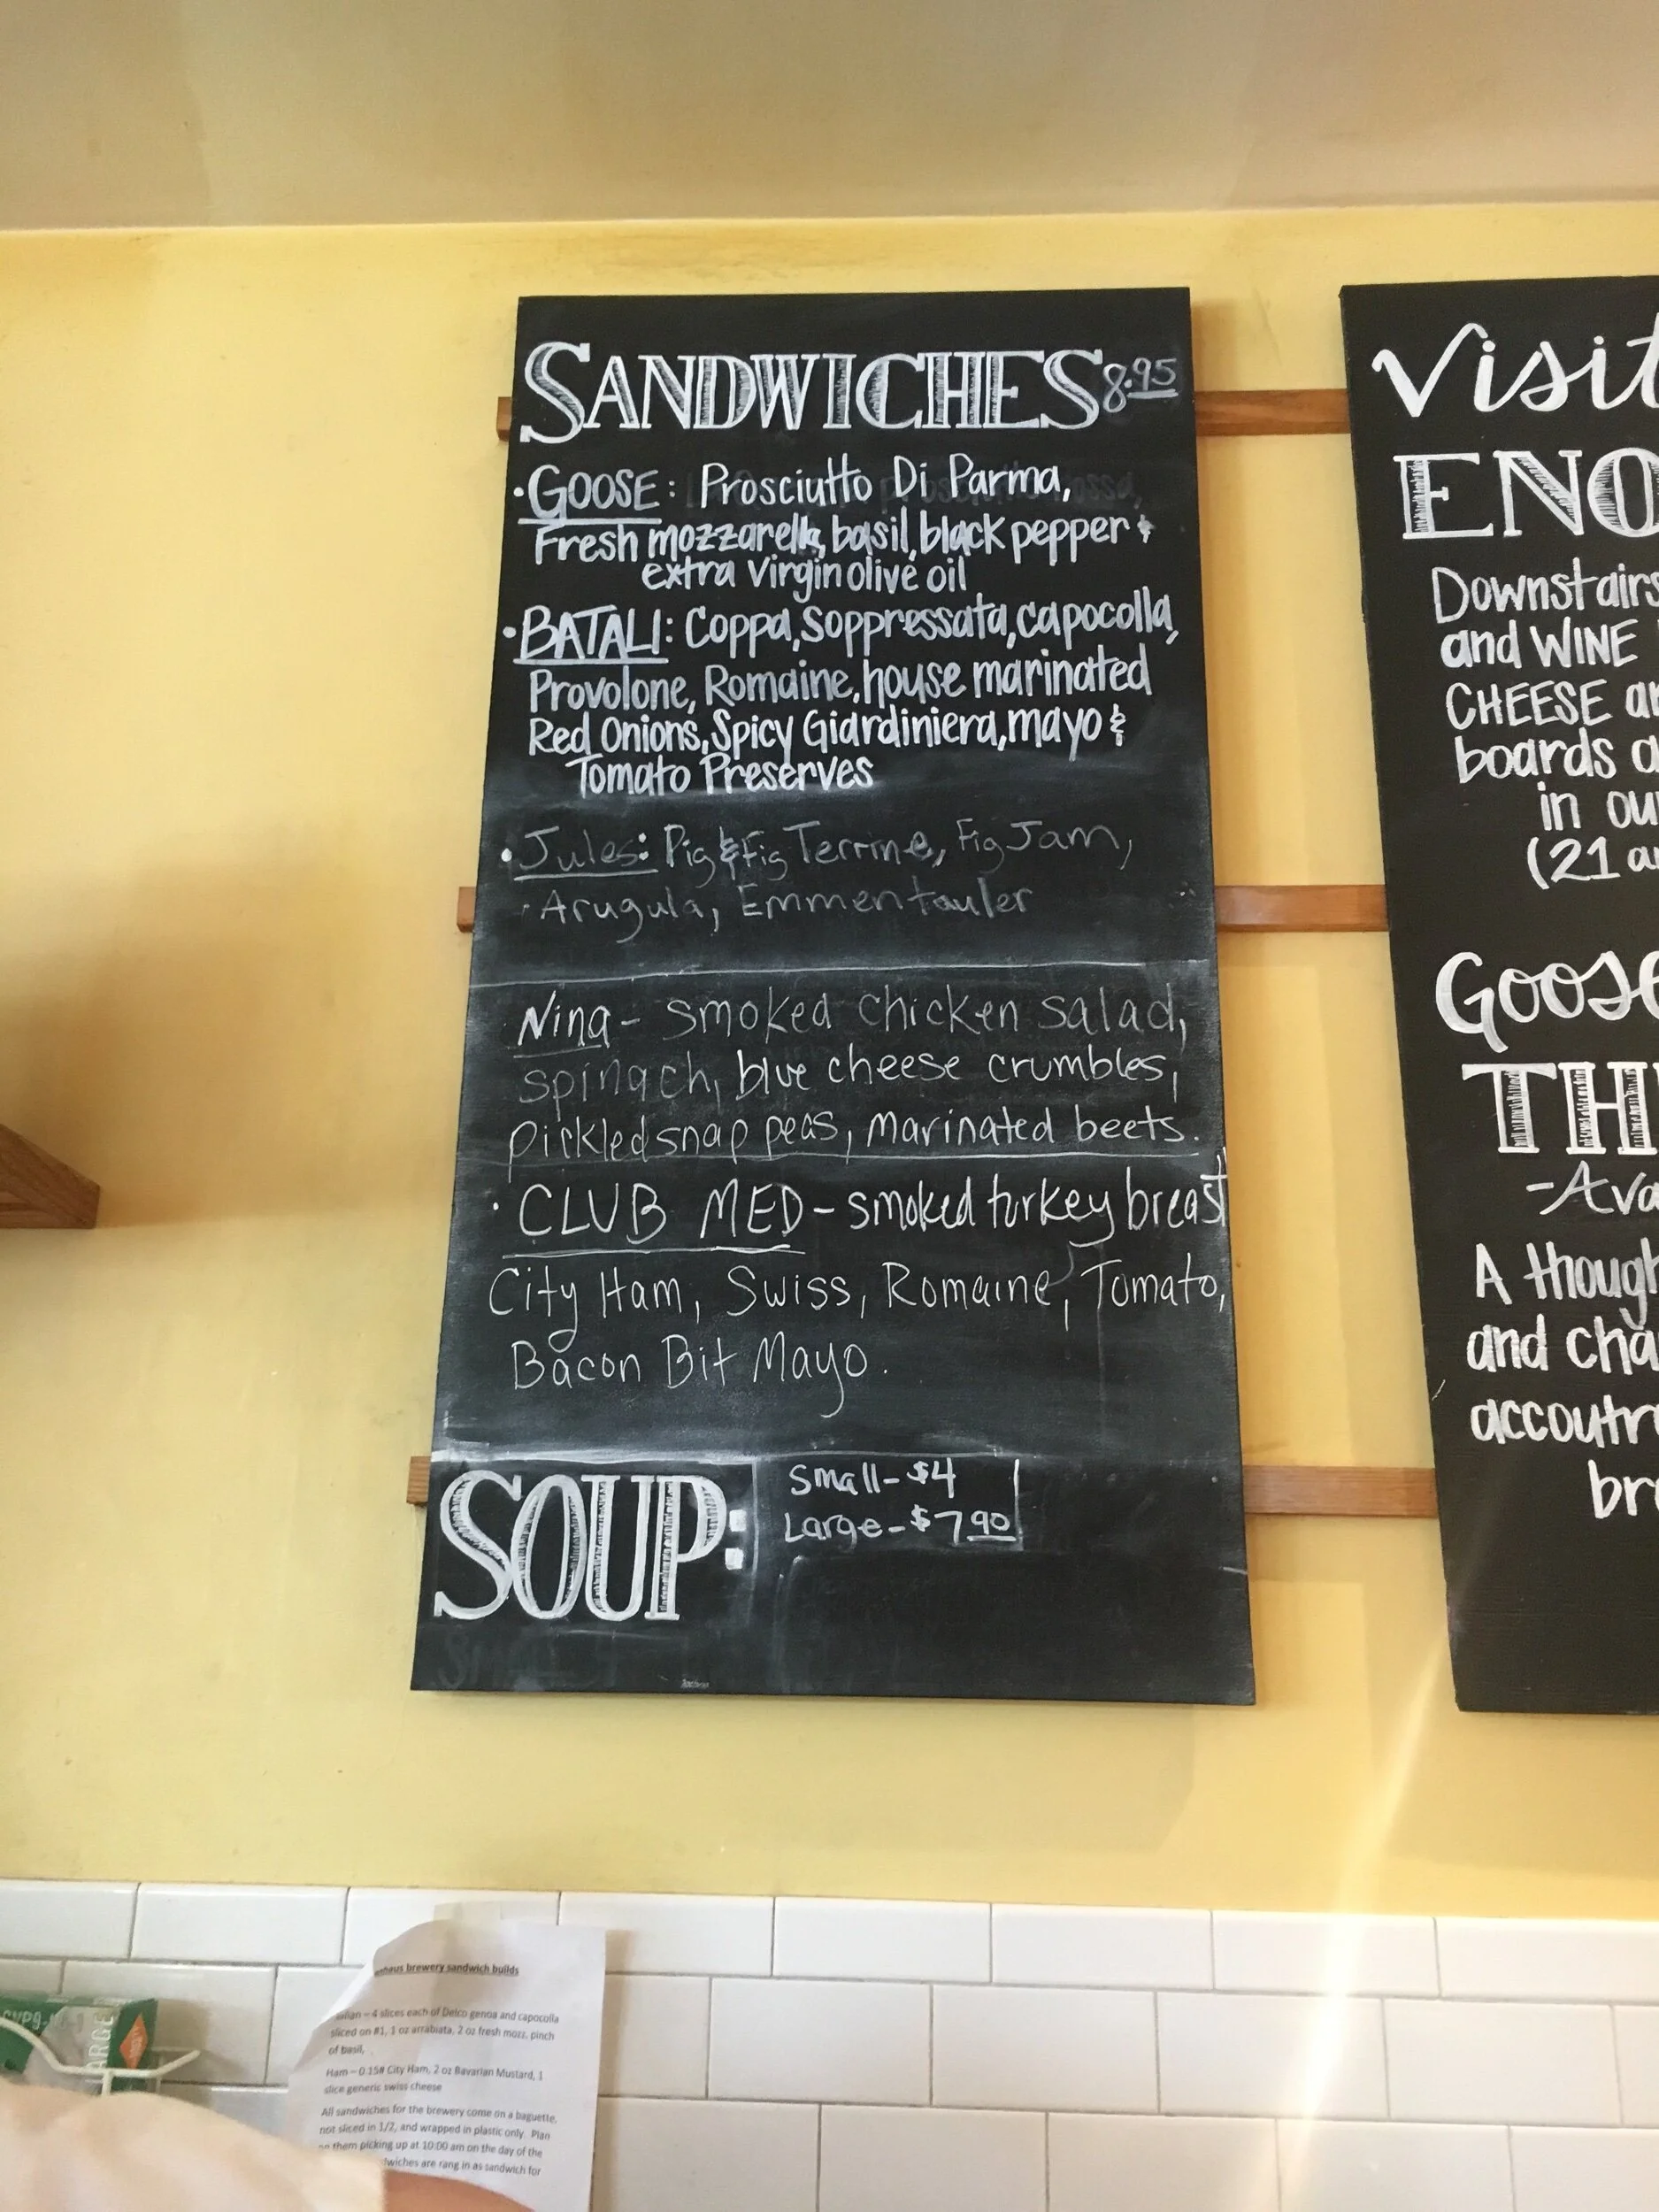 SANDWICHES 8.95
• GOOSE: Prosciutto Di Parma,
Fresh mozzarella, basil, black pepper &
extra virgin olive oil
• BATALI: Coppa, Soppressata, capocolla,
Provolone, Romaine, house marinated
Red Onions, Spicy Giardiniera, mayo &
Tomato Preserves
• Jules: Pig & Fig Terrine, Fig Jam,
Arugula, Emmentauler
Nina - smoked chicken salad,
spinach, blue cheese crumbles,
pickled snap peas, marinated beets.
• CLUB MED - smoked turkey breast
City Ham, Swiss, Romaine, Tomato,
Bacon Bit Mayo.
SOUP:
Small - $4
Large - $7.90
Visit
ENO
Downstairs
and WINE
CHEESE
boards
in
(21
GOOSE
TH
- Ava
A though
and cha
accoutr
br
brewery sandwich builds
4 slices each of Delco genoa and capocolla
sliced on #1, 1 oz arrabiata, 2 oz fresh mozz, pinch
of basil,
Ham – 0.15# City Ham, 2 oz Bavarian Mustard, 1
slice generic swiss cheese
All sandwiches for the brewery come on a baguette,
not sliced in 1/2, and wrapped in plastic only. Plan
them picking up at 10:00 am on the day of the
are rang in as sandwich for
ARGE